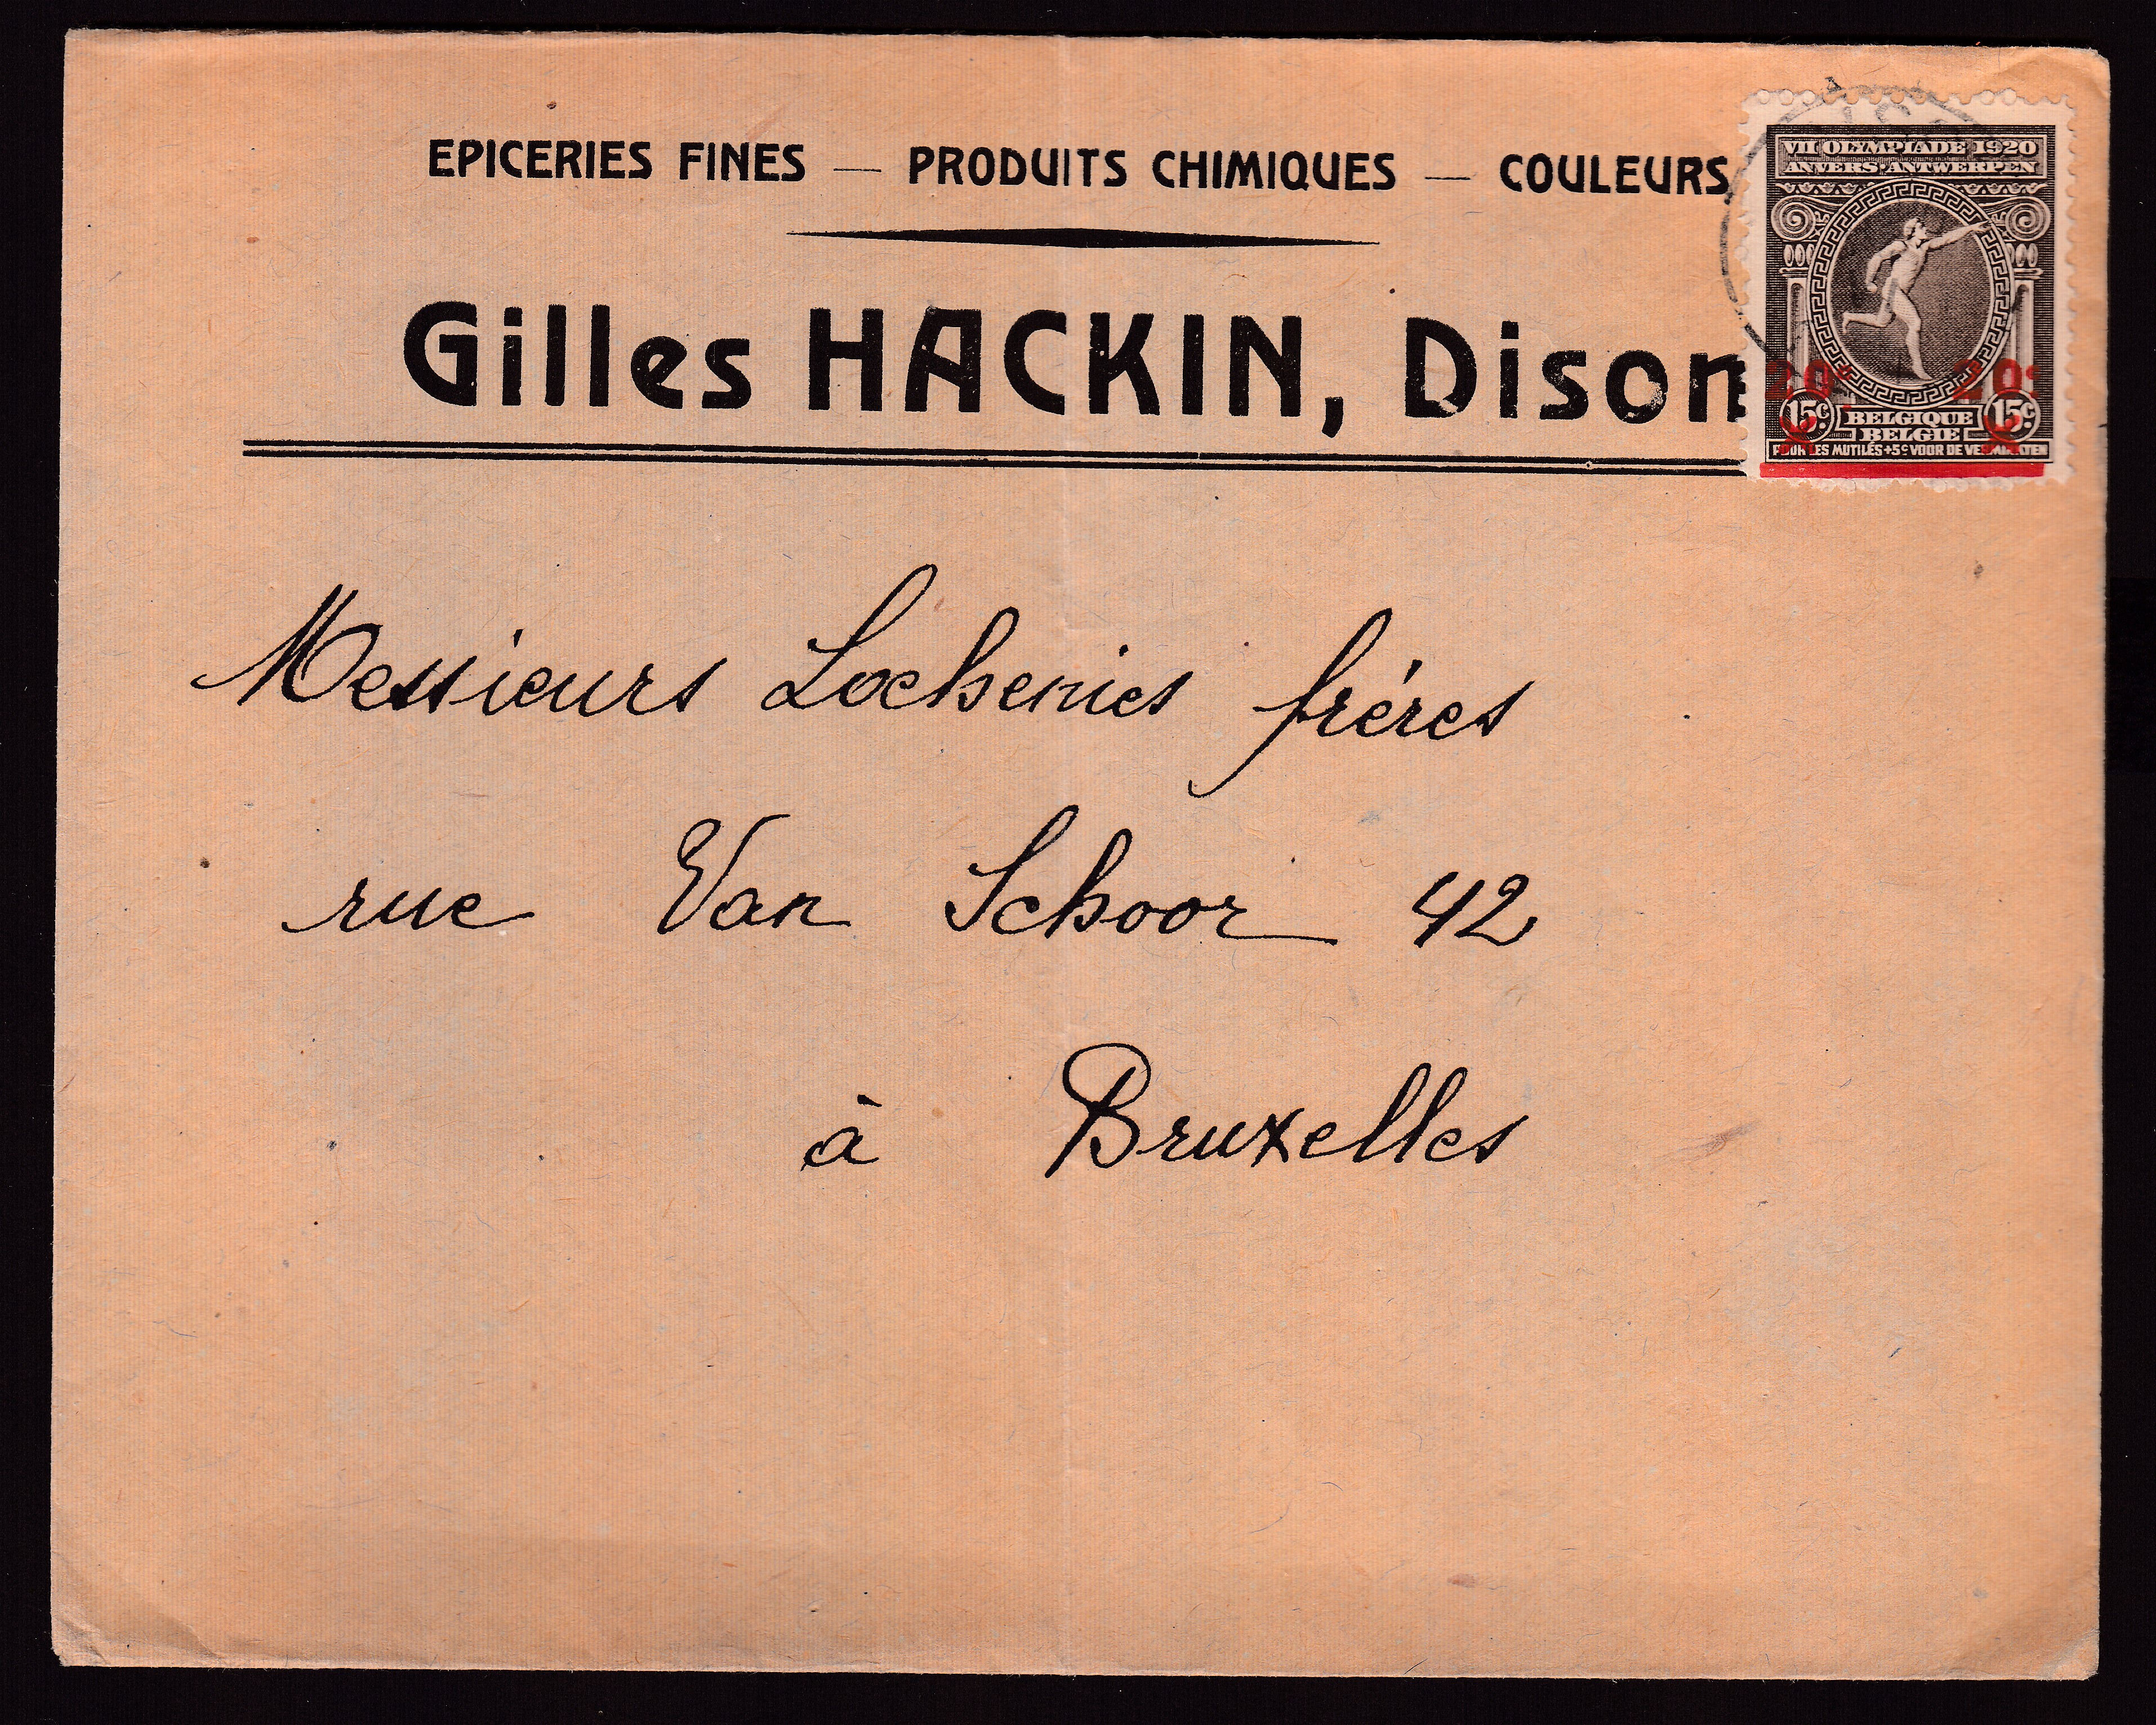 EPICERIES FINES — PRODUITS CHIMIQUES — COULEURS
Gilles HACKIN, Dison
VII OLYMPIADE 1920
ANVERS·ANTWERPEN
20c 20c
15c BELGIQUE 15c
BELGIE
POUR LES MUTILÉS +5c VOOR DE VERMINKTEN
Messieurs Lochenies frères
rue Van Schoor 42
à Bruxelles